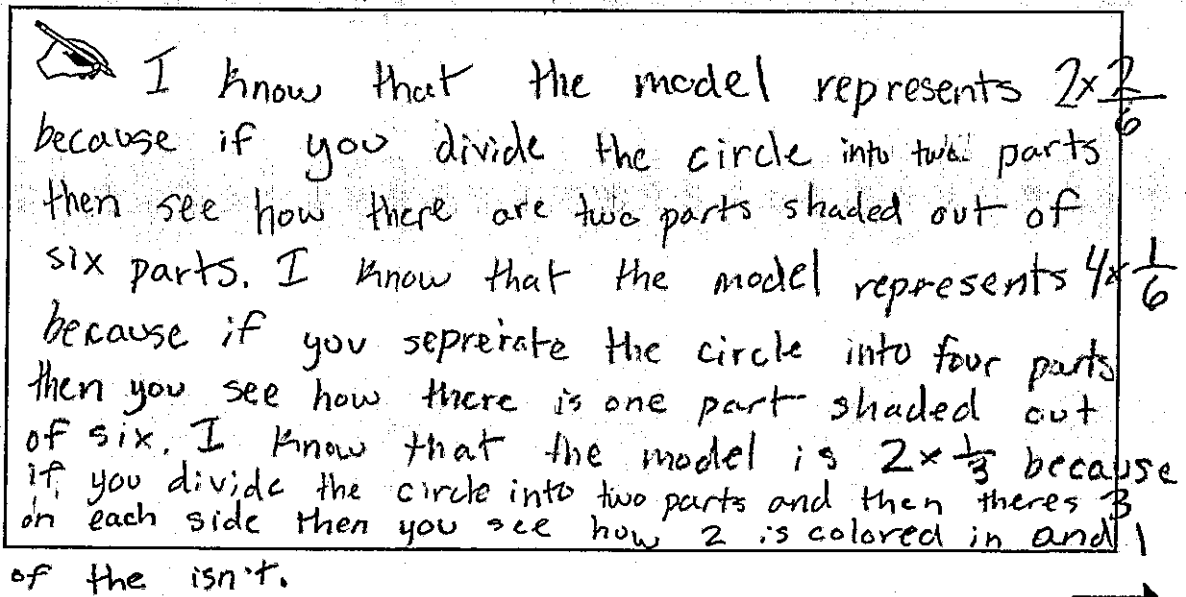 I know that the model represents 2x 2/6
because if you divide the circle into two parts
then see how there are two parts shaded out of
six parts. I know that the model represents 4x 1/6
because if you seprerate the circle into four parts
then you see how there is one part shaded out
of six. I know that the model is 2x 1/3 because
if you divide the circle into two parts and then theres 3
on each side then you see how 2 is colored in and 1
of the isn't.